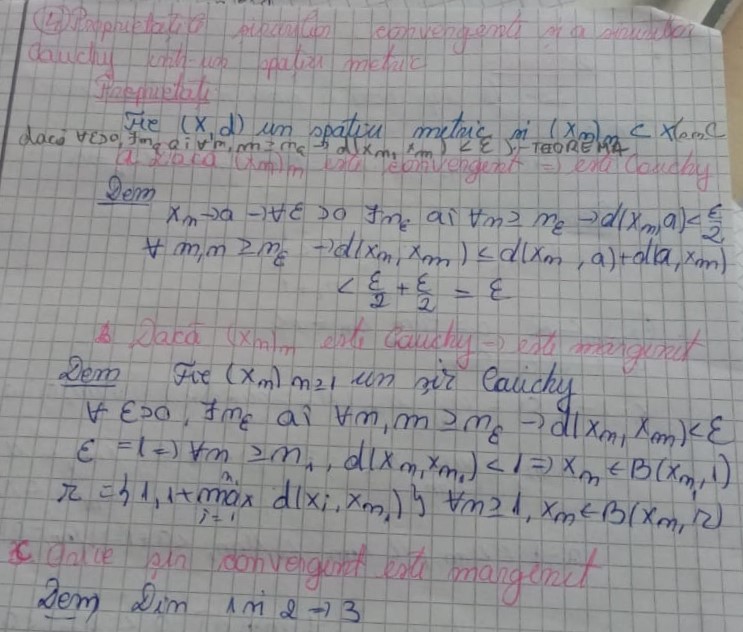 (14) Proprietatile sirurilor convergente si a sirurilor
Cauchy intr-un spatiu metric
Proprietati
Fie (X,d) un spatiu metric si (xn)n ⊂ X (xn C
daca ∀ε>0, ∃nε ai ∀n,m ≥ nε → d(xn, xm) < ε) - TEOREMA
a Daca (xn)n este convergent => este Cauchy
Dem
xn → a → ∀ε >0 ∃nε ai ∀n ≥ nε → d(xn,a) < ε/2
∀ m,n ≥ nε → d(xn, xm) ≤ d(xn, a) + d(a, xm)
< ε/2 + ε/2 = ε
b Daca (xn)n este Cauchy → este marginit
Dem Fie (xn) n≥1 un sir Cauchy
∀ ε>0, ∃nε ai ∀n, m ≥ nε → d(xn, xm) < ε
ε = 1 => ∀n ≥ n1, d(xn, xn1) < 1 => xn ∈ B(xn1, 1)
r = {1, 1+ max d(xi, xn1)} ∀n≥1, xn ∈ B(xn1, r)
i=1
c Orice sir convergent este marginit
Dem Din 1 si 2 → 3